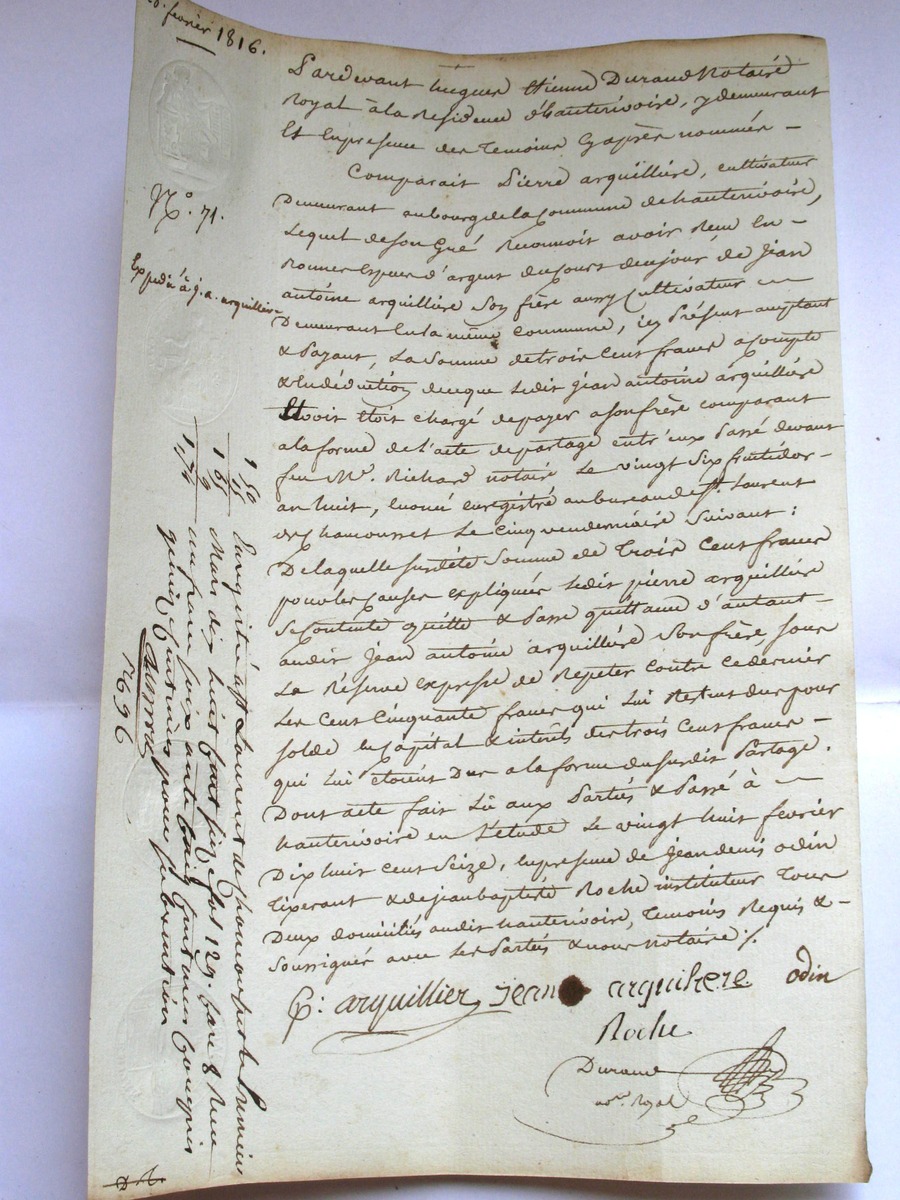 février 1816.
Pardevant hugues Etienne Durand Notaire
Royal à la Residence d'hauterivoire, y demeurant
Et Enpresence des Temoins Cyaprès nommés —
Comparait Pierre arquillière, cultivateur
Demeurant aubourg de la Commune de hauterivoire,
Lequel de Son Gré Reconnoit avoir Reçu En —
Espèces d'argent du Cours de ce jour, de Jean
antoine arquillière Son frère aussy Cultivateur —
Demeurant En la même Commune, icy Présent acceptant
& Payant, La Somme de trois Cent francs acompte
& En déduction de ce que Ledit jean antoine arquillière
Etoit chargé de payer a son frère comparant
ala forme de l'acte de partage Entr'eux Passé devant
feu Me. Richard notaire Le vingt Six fructidor —
an huit, Enregistré au bureau de St. Laurent
de Chamousset Le Cinq vendemiaire Suivant :
De laquelle Susdite Somme de Trois Cent francs
pour les Causes Expliquées Ledit pierre arquillière
Se Contente quitte & Passe quittance d'autant —
audit Jean antoine arquillière Son frère, Sous
La Réserve Expresse de Repeter Contre Ce dernier
Les Cent Cinquante francs qui Lui Restent dus pour
Solde En Capital & interêts des trois Cent francs —
qui Lui étoient Dus a la forme du Susdit Partage.
Dont acte fait Lû aux Parties & Passé à —
hauterivoire en L'étude Le vingt huit février
Dix huit Cent Seize, En presence de Jean denis Odin
Tixerant & de jean baptiste Roche instituteur Tous
Deux domiciliés audit hauterivoire, Temoins Requis & —
Soussignés avec Les Parties & nous notaire ./.
P: arquillier jean arquillere odin
Roche
Durand
no.re Royal
No. 71.
Expedié à j. a. arquillière
1 50
15
1 65
9
1,74
Enregistré à St Laurent de chamousset le Premier
Mars dix huit cent seize fol 129. Case 8 Reçu
un franc soixante cinq centimes compris
quinze centimes pour subvention
N 696